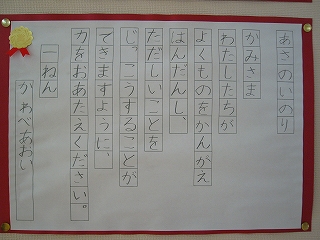 あさのいのり
かみさま
わたしたちが
よくものをかんがえ
はんだんし、
ただしいことを
じっこうすることが
できますように、
力をおあたえください。
一ねん
かわべあおい